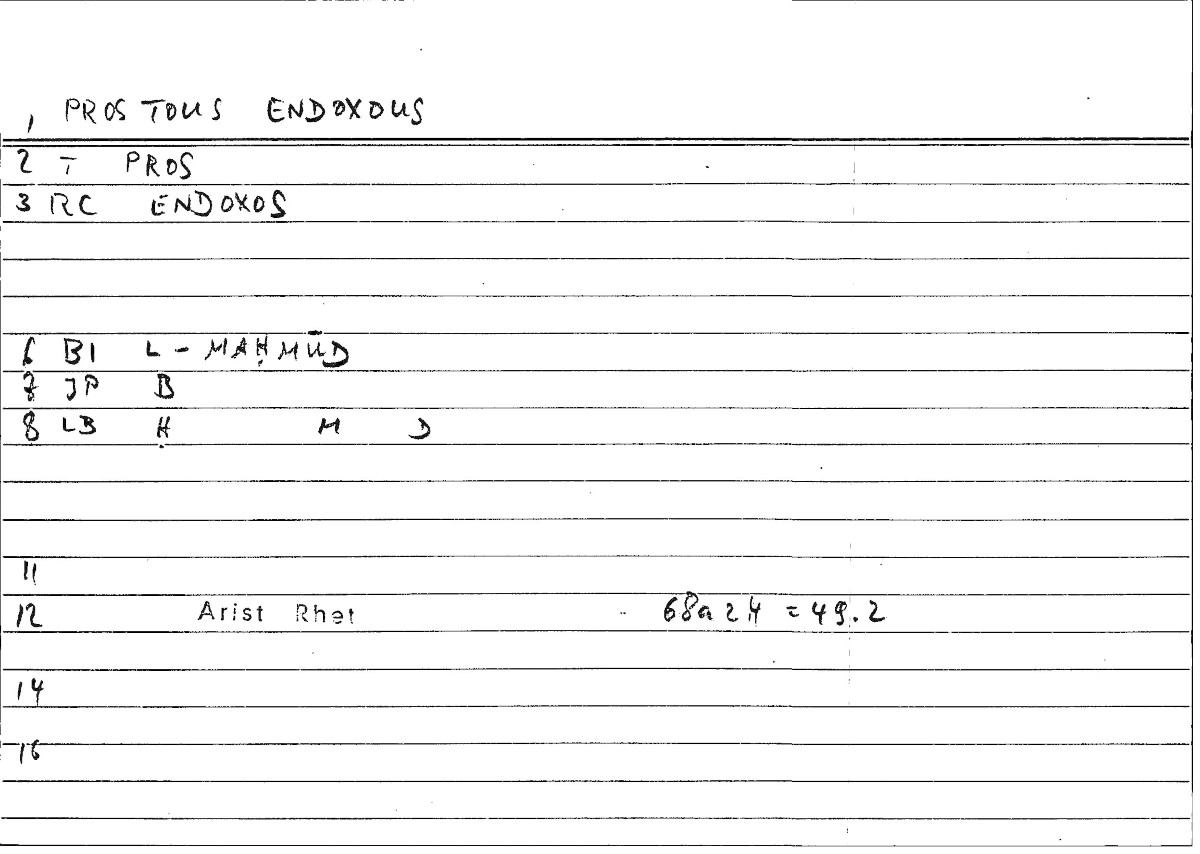 1 PROS TOUS ENDOXOUS
2 T PROS
3 RC ENDOXOS
6 BI L-MAḤMŪD
7 JP B
8 LB Ḥ M D
11
12 Arist Rhet 68a24 = 49.2
14
16